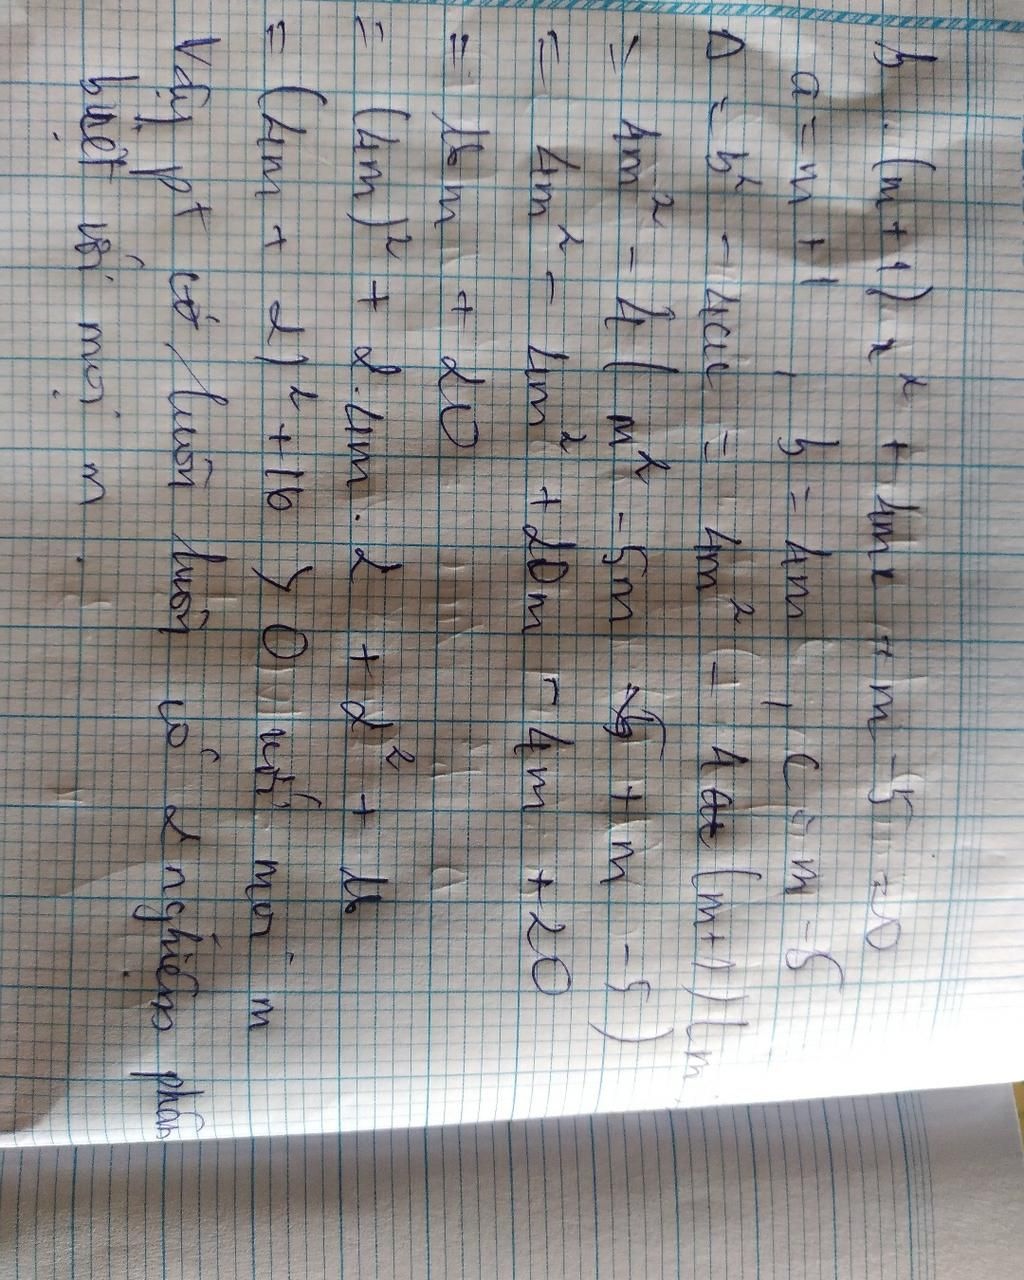 b. (m+1)x² + 4mx + m - 5 = 0
a = m + 1 , b = 4m , c = m - 5
Δ = b² - 4ac = 4m² - 4 (m+1)(m
= 4m² - 4(m² - 5m + m - 5)
= 4m² - 4m² + 20m - 4m + 20
= 16m + 20
= (4m)² + 2.4m.2 + 2² + 16
= (4m + 2)² + 16 > 0 với mọi m
Vậy pt có luôn luôn có 2 nghiệm phân
biệt với mọi m.